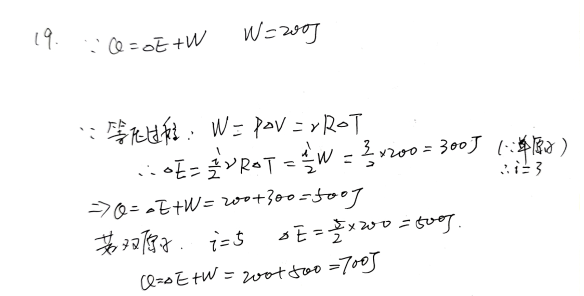 19. ∵ Q=△E+W W=200J
∵ 等压过程: W=P△V=νR△T
∴ △E=i/2 νR△T=i/2 W=3/2×200=300J (∵单原子
∴i=3
⇒Q=△E+W=200+300=500J
若双原子. i=5 △E=5/2×200=500J.
Q=△E+W=200+500=700J